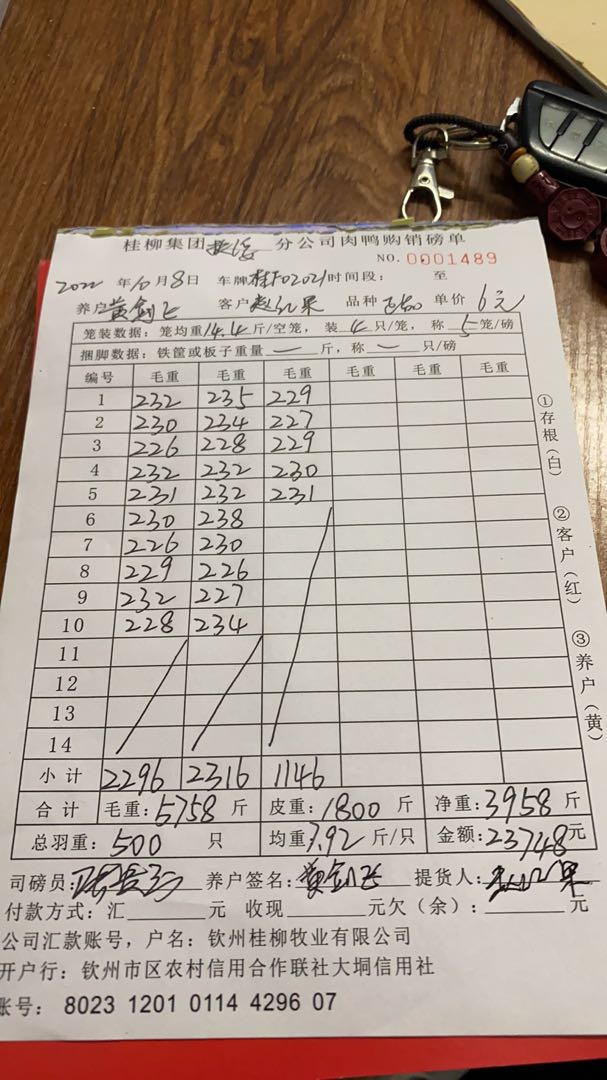 桂柳集团 分公司肉鸭购销磅单
NO. 0001489
2022 年 10 月 8 日 车牌 桂F02021 时间段: 至
养户 黄剑飞 客户 赵汉果 品种 单价 6元
笼装数据: 笼均重 14.4 斤/空笼, 装 4 只/笼, 称 5 笼/磅
捆脚数据: 铁筐或板子重量 一 斤, 称 一 只/磅
编号 毛重 毛重 毛重 毛重 毛重 毛重
1 232 235 229
2 230 234 227
3 226 228 229
4 232 232 230
5 231 232 231
6 230 238
7 226 230
8 229 226
9 232 227
10 228 234
11
12
13
14
小计 2296 2316 1146
合计 毛重: 5758 斤 皮重: 1800 斤 净重: 3958 斤
总羽重: 500 只 均重 7.92 斤/只 金额: 23748 元
司磅员: 养户签名: 黄剑飞 提货人:
付款方式: 汇 元 收现 元欠(余): 元
公司汇款账号, 户名: 钦州桂柳牧业有限公司
开户行: 钦州市区农村信用合作联社大垌信用社
账号: 8023 1201 0114 4296 07
①存根(白)
②客户(红)
③养户(黄)